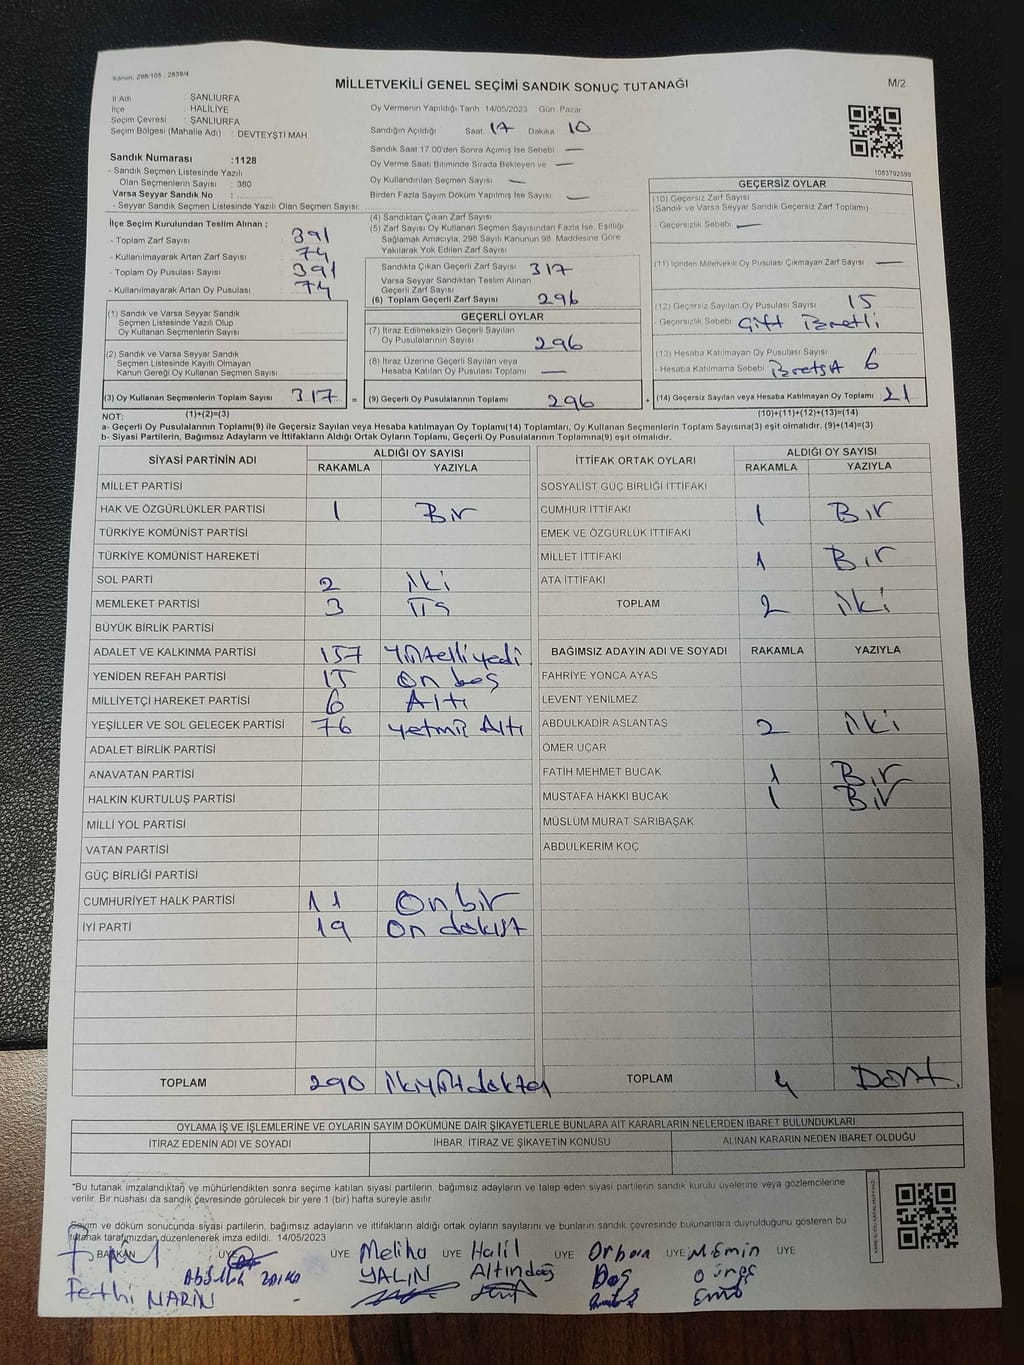 Kanun: 298/105 , 2839/4
MİLLETVEKİLİ GENEL SEÇİMİ SANDIK SONUÇ TUTANAĞI
M/2
İl Adı : ŞANLIURFA
İlçe : HALİLİYE
Seçim Çevresi : ŞANLIURFA
Seçim Bölgesi (Mahalle Adı) : DEVTEYŞTİ MAH
Sandık Numarası :1128
- Sandık Seçmen Listesinde Yazılı
Olan Seçmenlerin Sayısı : 380
Varsa Seyyar Sandık No :
- Seyyar Sandık Seçmen Listesinde Yazılı Olan Seçmen Sayısı:
Oy Vermenin Yapıldığı Tarih 14/05/2023 Gün: Pazar
Sandığın Açıldığı Saat 17 Dakika 10
Sandık Saat 17:00'den Sonra Açımış İse Sebebi —
Oy Verme Saati Bitiminde Sırada Bekleyen ve —
Oy Kullandırılan Seçmen Sayısı —
Birden Fazla Sayım Döküm Yapılmış İse Sayısı —
1083792599
İlçe Seçim Kurulundan Teslim Alınan ;
- Toplam Zarf Sayısı 391
- Kullanılmayarak Artan Zarf Sayısı 74
- Toplam Oy Pusulası Sayısı 391
- Kullanılmayarak Artan Oy Pusulası 74
(1) Sandık ve Varsa Seyyar Sandık
Seçmen Listesinde Yazılı Olup
Oy Kullanan Seçmenlerin Sayısı
(2) Sandık ve Varsa Seyyar Sandık
Seçmen Listesinde Kaytlı Olmayan
Kanun Gereği Oy Kullanan Seçmen Sayısı
(3) Oy Kullanan Seçmenlerin Toplam Sayısı 317 =
(4) Sandıktan Çıkan Zarf Sayısı
(5) Zarf Sayısı Oy Kullanan Seçmen Sayısından Fazla İse, Eşitliği
Sağlamak Amacıyla, 298 Sayılı Kanunun 98. Maddesine Göre
Yakılarak Yok Edilen Zarf Sayısı
Sandıkta Çıkan Geçerli Zarf Sayısı 317
Varsa Seyyar Sandıktan Teslim Alınan
Geçerli Zarf Sayısı
(6) Toplam Geçerli Zarf Sayısı 296
GEÇERLİ OYLAR
(7) İtiraz Edilmeksizin Geçerli Sayılan
Oy Pusulalarının Sayısı 296
(8) İtiraz Üzerine Geçerli Sayılan veya
Hesaba Katılan Oy Pusulası Toplamı —
(9) Geçerli Oy Pusulalarının Toplamı 296 +
GEÇERSİZ OYLAR
(10) Geçersiz Zarf Sayısı
(Sandık ve Varsa Seyyar Sandık Geçersiz Zarf Toplamı)
- Geçersizlik Sebebi —
(11) İçinden Milletvekili Oy Pusulası Çıkmayan Zarf Sayısı —
(12) Geçersiz Sayılan Oy Pusulası Sayısı 15
- Geçersizlik Sebebi
(13) Hesaba Katılmayan Oy Pusulası Sayısı 6
- Hesaba Katılmama Sebebi
(14) Geçersiz Sayılan veya Hesaba Katılmayan Oy Toplamı 21
NOT: (1)+(2)=(3)
(10)+(11)+(12)+(13)=(14)
a- Geçerli Oy Pusulalarının Toplamı(9) ile Geçersiz Sayılan veya Hesaba katılmayan Oy Toplamı(14) Toplamları, Oy Kullanan Seçmenlerin Toplam Sayısına(3) eşit olmalıdır. (9)+(14)=(3)
b- Siyasi Partilerin, Bağımsız Adayların ve İttifakların Aldığı Ortak Oyların Toplamı, Geçerli Oy Pusulalarının Toplamına(9) eşit olmalıdır.
SİYASİ PARTİNİN ADI
ALDIĞI OY SAYISI
RAKAMLA YAZIYLA
MİLLET PARTİSİ
HAK VE ÖZGÜRLÜKLER PARTİSİ 1 Bir
TÜRKİYE KOMÜNİST PARTİSİ
TÜRKİYE KOMÜNİST HAREKETİ
SOL PARTİ 2 iki
MEMLEKET PARTİSİ 3
BÜYÜK BİRLİK PARTİSİ
ADALET VE KALKINMA PARTİSİ 157 Yüzelliyedi
YENİDEN REFAH PARTİSİ 15 On beş
MİLLİYETÇİ HAREKET PARTİSİ 6 Altı
YEŞİLLER VE SOL GELECEK PARTİSİ 76 yetmiş Altı
ADALET BİRLİK PARTİSİ
ANAVATAN PARTİSİ
HALKIN KURTULUŞ PARTİSİ
MİLLİ YOL PARTİSİ
VATAN PARTİSİ
GÜÇ BİRLİĞİ PARTİSİ
CUMHURİYET HALK PARTİSİ 11 On bir
İYİ PARTİ 19 On dokuz
TOPLAM 290
İTTİFAK ORTAK OYLARI
ALDIĞI OY SAYISI
RAKAMLA YAZIYLA
SOSYALİST GÜÇ BİRLİĞİ İTTİFAKI
CUMHUR İTTİFAKI 1 Bir
EMEK VE ÖZGÜRLÜK İTTİFAKI
MİLLET İTTİFAKI 1 Bir
ATA İTTİFAKI
TOPLAM 2 iki
BAĞIMSIZ ADAYIN ADI VE SOYADI RAKAMLA YAZIYLA
FAHRİYE YONCA AYAS
LEVENT YENİLMEZ
ABDULKADİR ASLANTAŞ 2 iki
ÖMER UÇAR
FATİH MEHMET BUCAK 1 Bir
MUSTAFA HAKKI BUCAK 1 Bir
MÜSLÜM MURAT SARIBAŞAK
ABDULKERİM KOÇ
TOPLAM 4 Dört
OYLAMA İŞ VE İŞLEMLERİNE VE OYLARIN SAYIM DÖKÜMÜNE DAİR ŞİKAYETLERLE BUNLARA AİT KARARLARIN NELERDEN İBARET BULUNDUKLARI
İTİRAZ EDENİN ADI VE SOYADI
İHBAR, İTİRAZ VE ŞİKAYETİN KONUSU
ALINAN KARARIN NEDEN İBARET OLDUĞU
*Bu tutanak imzalandıktan ve mühürlendikten sonra seçime katılan siyasi partilerin, bağımsız adayların ve talep eden siyasi partilerin sandık kurulu üyelerine veya gözlemcilerine
verilir. Bir nüshası da sandık çevresinde görülecek bir yere 1 (bir) hafta süreyle asılır.
Sayım ve döküm sonucunda siyasi partilerin, bağımsız adayların ve ittifakların aldığı ortak oyların sayılarını ve bunların sandık çevresinde bulunanlara duyrulduğunu gösteren bu
tutanak tarafımızdan düzenlenerek imza edildi. 14/05/2023
BAŞKAN ÜYE ÜYE ÜYE ÜYE ÜYE ÜYE
Fethi NARİN
Meliha YALIN
Halil Altındağ
Orhan
M.Emin